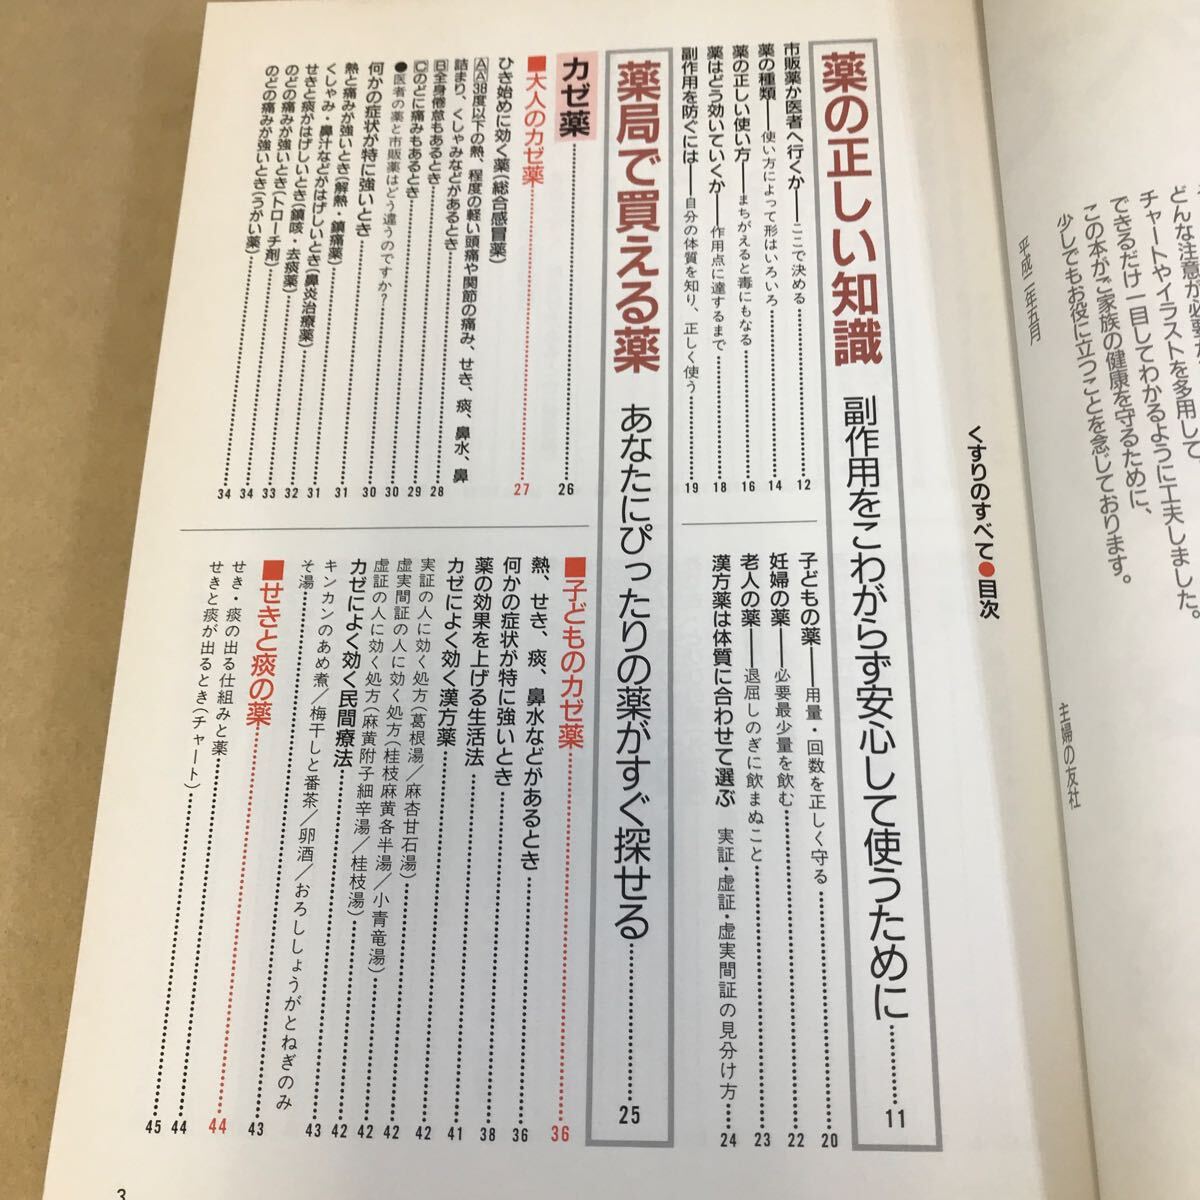 どんな注意が必要か
チャートやイラストを多用して、
できるだけ一目してわかるように工夫しました。
この本がご家族の健康を守るために、
少しでもお役に立つことを念じております。
平成二年五月
主婦の友社
くすりのすべて●目次
薬の正しい知識 副作用をこわがらず安心して使うために……11
市販薬か医者へ行くか──ここで決める……12
薬の種類──使い方によって形はいろいろ……14
薬の正しい使い方──まちがえると毒にもなる……16
薬はどう効いていくか──作用点に達するまで……18
副作用を防ぐには──自分の体質を知り、正しく使う……19
子どもの薬──用量・回数を正しく守る……20
妊婦の薬──必要最少量を飲む……22
老人の薬──退屈しのぎに飲まぬこと……23
漢方薬は体質に合わせて選ぶ 実証・虚証・虚実間証の見分け方……24
薬局で買える薬 あなたにぴったりの薬がすぐ探せる……25
カゼ薬……26
■大人のカゼ薬……27
ひき始めに効く薬(総合感冒薬)
A A38度以下の熱、程度の軽い頭痛や関節の痛み、せき、痰、鼻水、鼻
詰まり、くしゃみなどがあるとき……28
B全身倦怠もあるとき……28
Cのどに痛みもあるとき……29
●医者の薬と市販薬はどう違うのですか?……30
何かの症状が特に強いとき……30
熱と痛みが強いとき(解熱・鎮痛薬)……31
くしゃみ・鼻汁などがはげしいとき(鼻炎治療薬)……31
せきと痰がはげしいとき(鎮咳・去痰薬)……32
のどの痛みが強いとき(トローチ剤)……33
のどの痛みが強いとき(うがい薬)……34
34
■子どものカゼ薬……36
熱、せき、痰、鼻水などがあるとき……36
何かの症状が特に強いとき……38
薬の効果を上げる生活法……41
カゼによく効く漢方薬……42
実証の人に効く処方(葛根湯/麻杏甘石湯)……42
虚実間証の人に効く処方(桂枝麻黄各半湯/小青竜湯)……42
虚証の人に効く処方(麻黄附子細辛湯/桂枝湯)……42
カゼによく効く民間療法……43
キンカンのあめ煮/梅干しと番茶/卵酒/おろししょうがとねぎのみ
そ湯……43
■せきと痰の薬……44
せき・痰の出る仕組みと薬……44
せきと痰が出るとき(チャート)……45
3